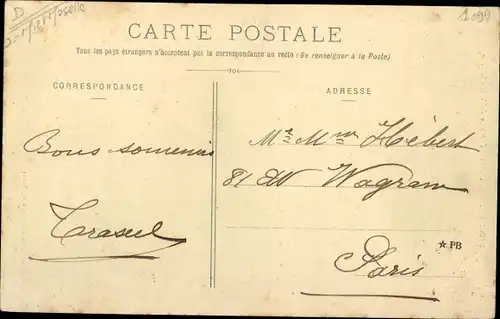 D
Mselle
1.09
CARTE POSTALE
Tous les pays étrangers n'acceptent pas la correspondance au recto (Se renseigner à la Poste)
CORRESPONDANCE
ADRESSE
Bons souvenirs
Mr Mme Hébert
81 Av Wagram
★ PB
Paris